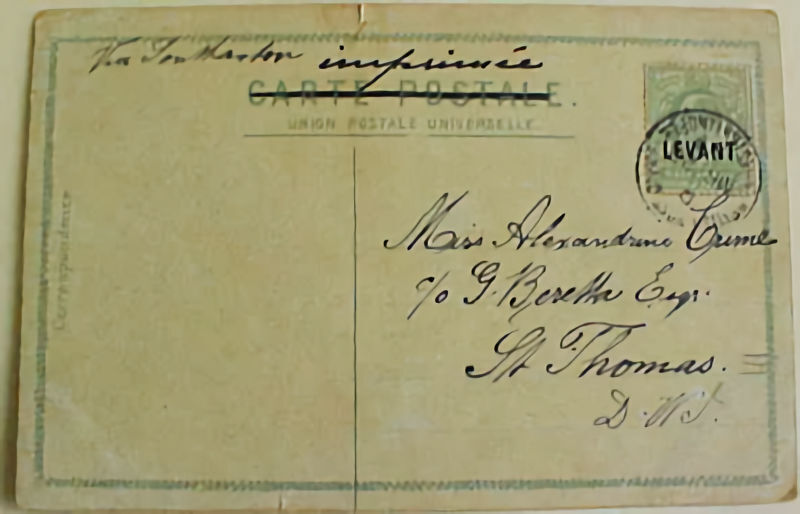 Via Southampton imprimée
CARTE POSTALE.
UNION POSTALE UNIVERSELLE.
LEVANT
Correspondance
Miss Alexandrine
c/o G. Beretta Esqr.
St Thomas.
D.W.I.